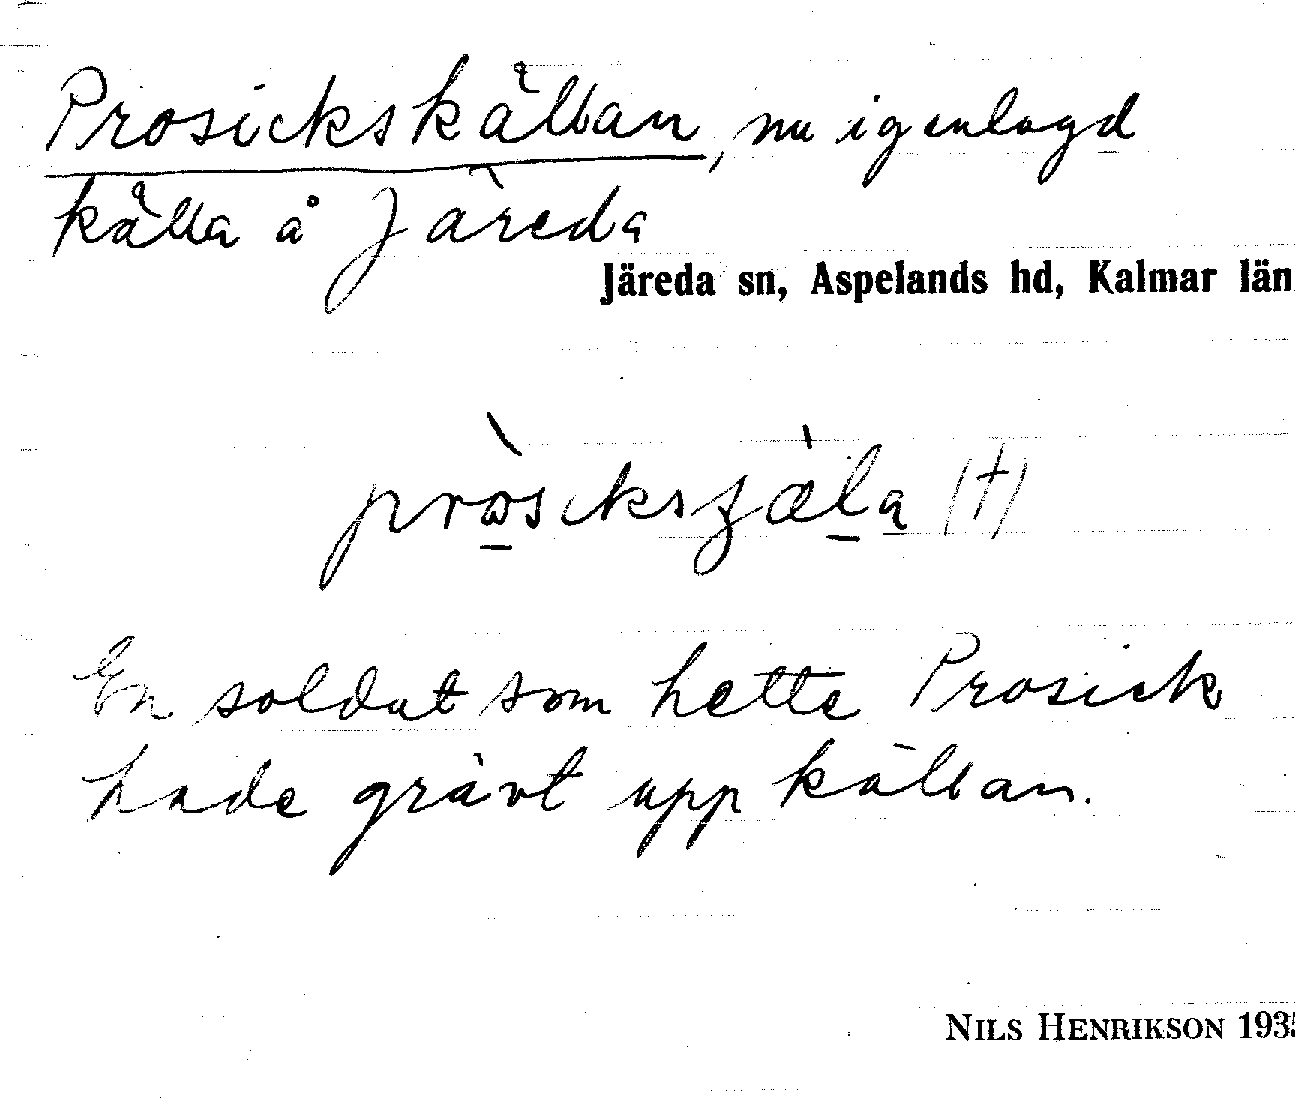 Prosickskällan, nu igenlagd
källa å Järeda
Järeda sn, Aspelands hd, Kalmar län
(†)
En soldat som hette Prosick
hade grävt upp källan.
NILS HENRIKSON 193